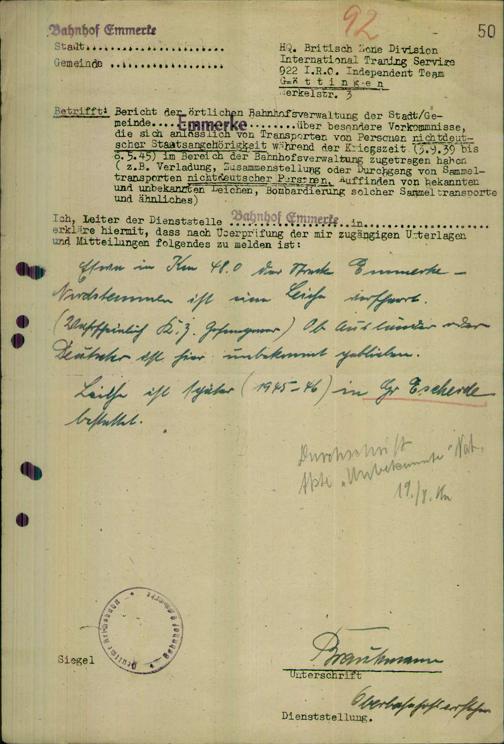 92
50
Bahnhof Emmerke
Stadt
Gemeinde
HQ. Britisch Zone Division
International Traning Service
922 I.R.O. Independent Team
Göttingen
Merkelstr. 3
Betrifft: Bericht der örtlichen Bahnhofsverwaltung der Stadt/Ge-
meinde....Emmerke........über besondere Vorkommnisse,
die sich anlässlich von Transporten von Personen nichtdeut-
scher Staatsangehörigkeit während der Kriegszeit (3.9.39 bis
8.5.45) im Bereich der Bahnhofsverwaltung zugetragen haben
( z.B. Verladung, Zusammenstellung oder Durchgang von Sammel-
transporten nichtdeutscher Personen, Auffinden von bekannten
und unbekannten Leichen, Bombardierung solcher Sammeltransporte
und ähnliches)
Ich, Leiter der Dienststelle Bahnhof Emmerke in
erkläre hiermit, dass nach Überprüfung der mir zugängigen Unterlagen
und Mitteilungen folgendes zu melden ist:
in Km 48.0 der Strecke Emmerke –
Nordstemmen ist eine Leiche verscharrt.
(Wahrscheinlich K.Z. Gefangener) Ob Ausländer oder
Deutscher ist hier unbekannt geblieben.
Leiche ist später (1945-46) in Gr Escherde
bestattet.
Durchschrift
Akte "Unbekannte" Nat.
19./8.
Siegel
Brautmann
Unterschrift
Dienststellung.